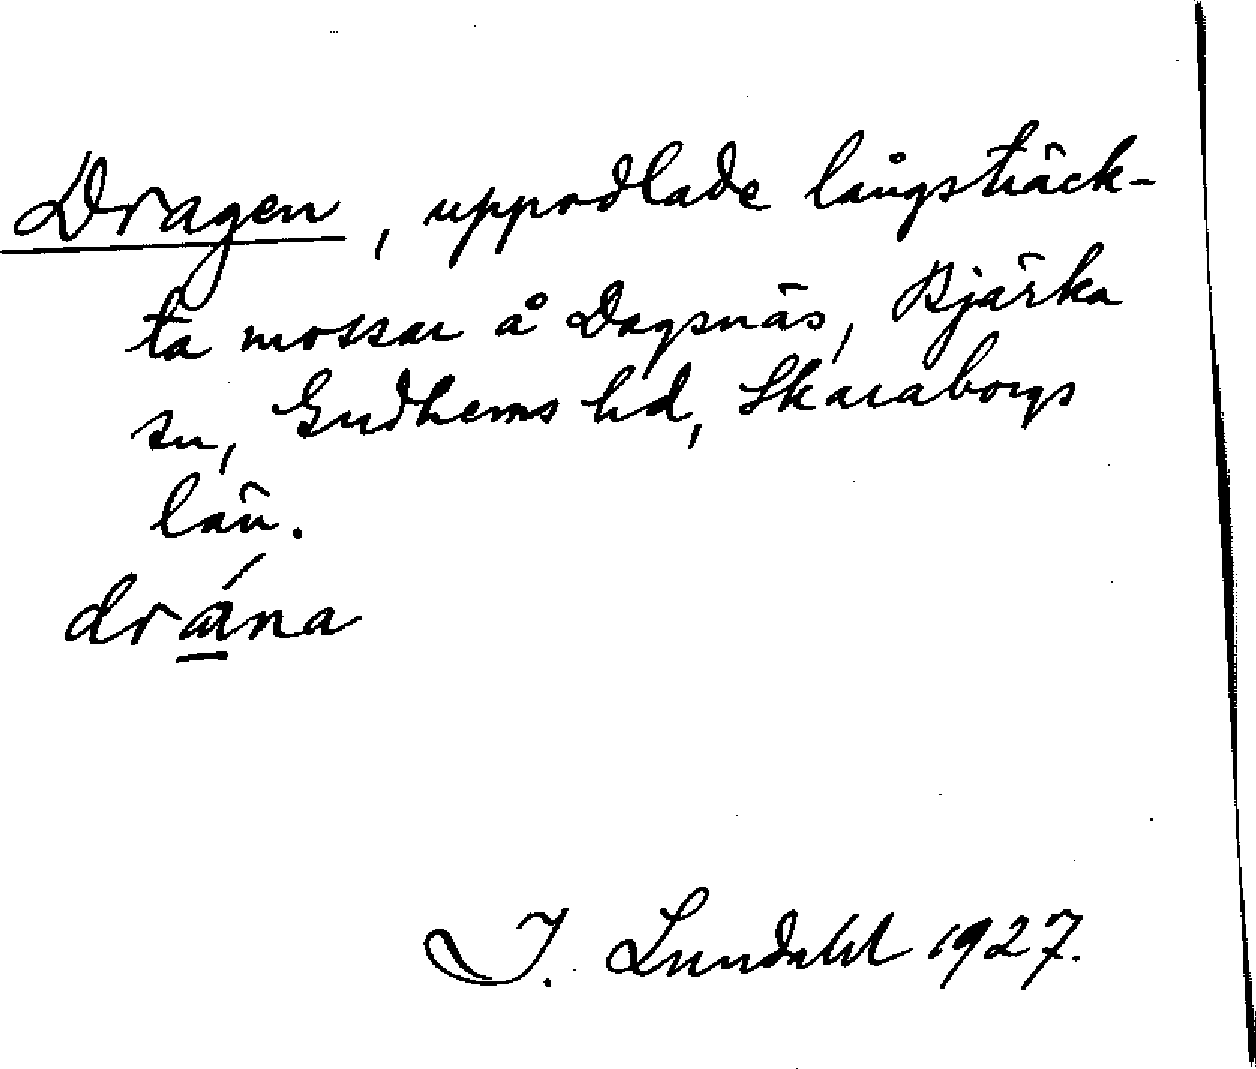 Dragen, uppodlade långsträck-
ta mossar å Dagsnäs, Bjärka
sn, Gudhems hd, Skaraborgs
län.
drána
I. Lundahl 1927.